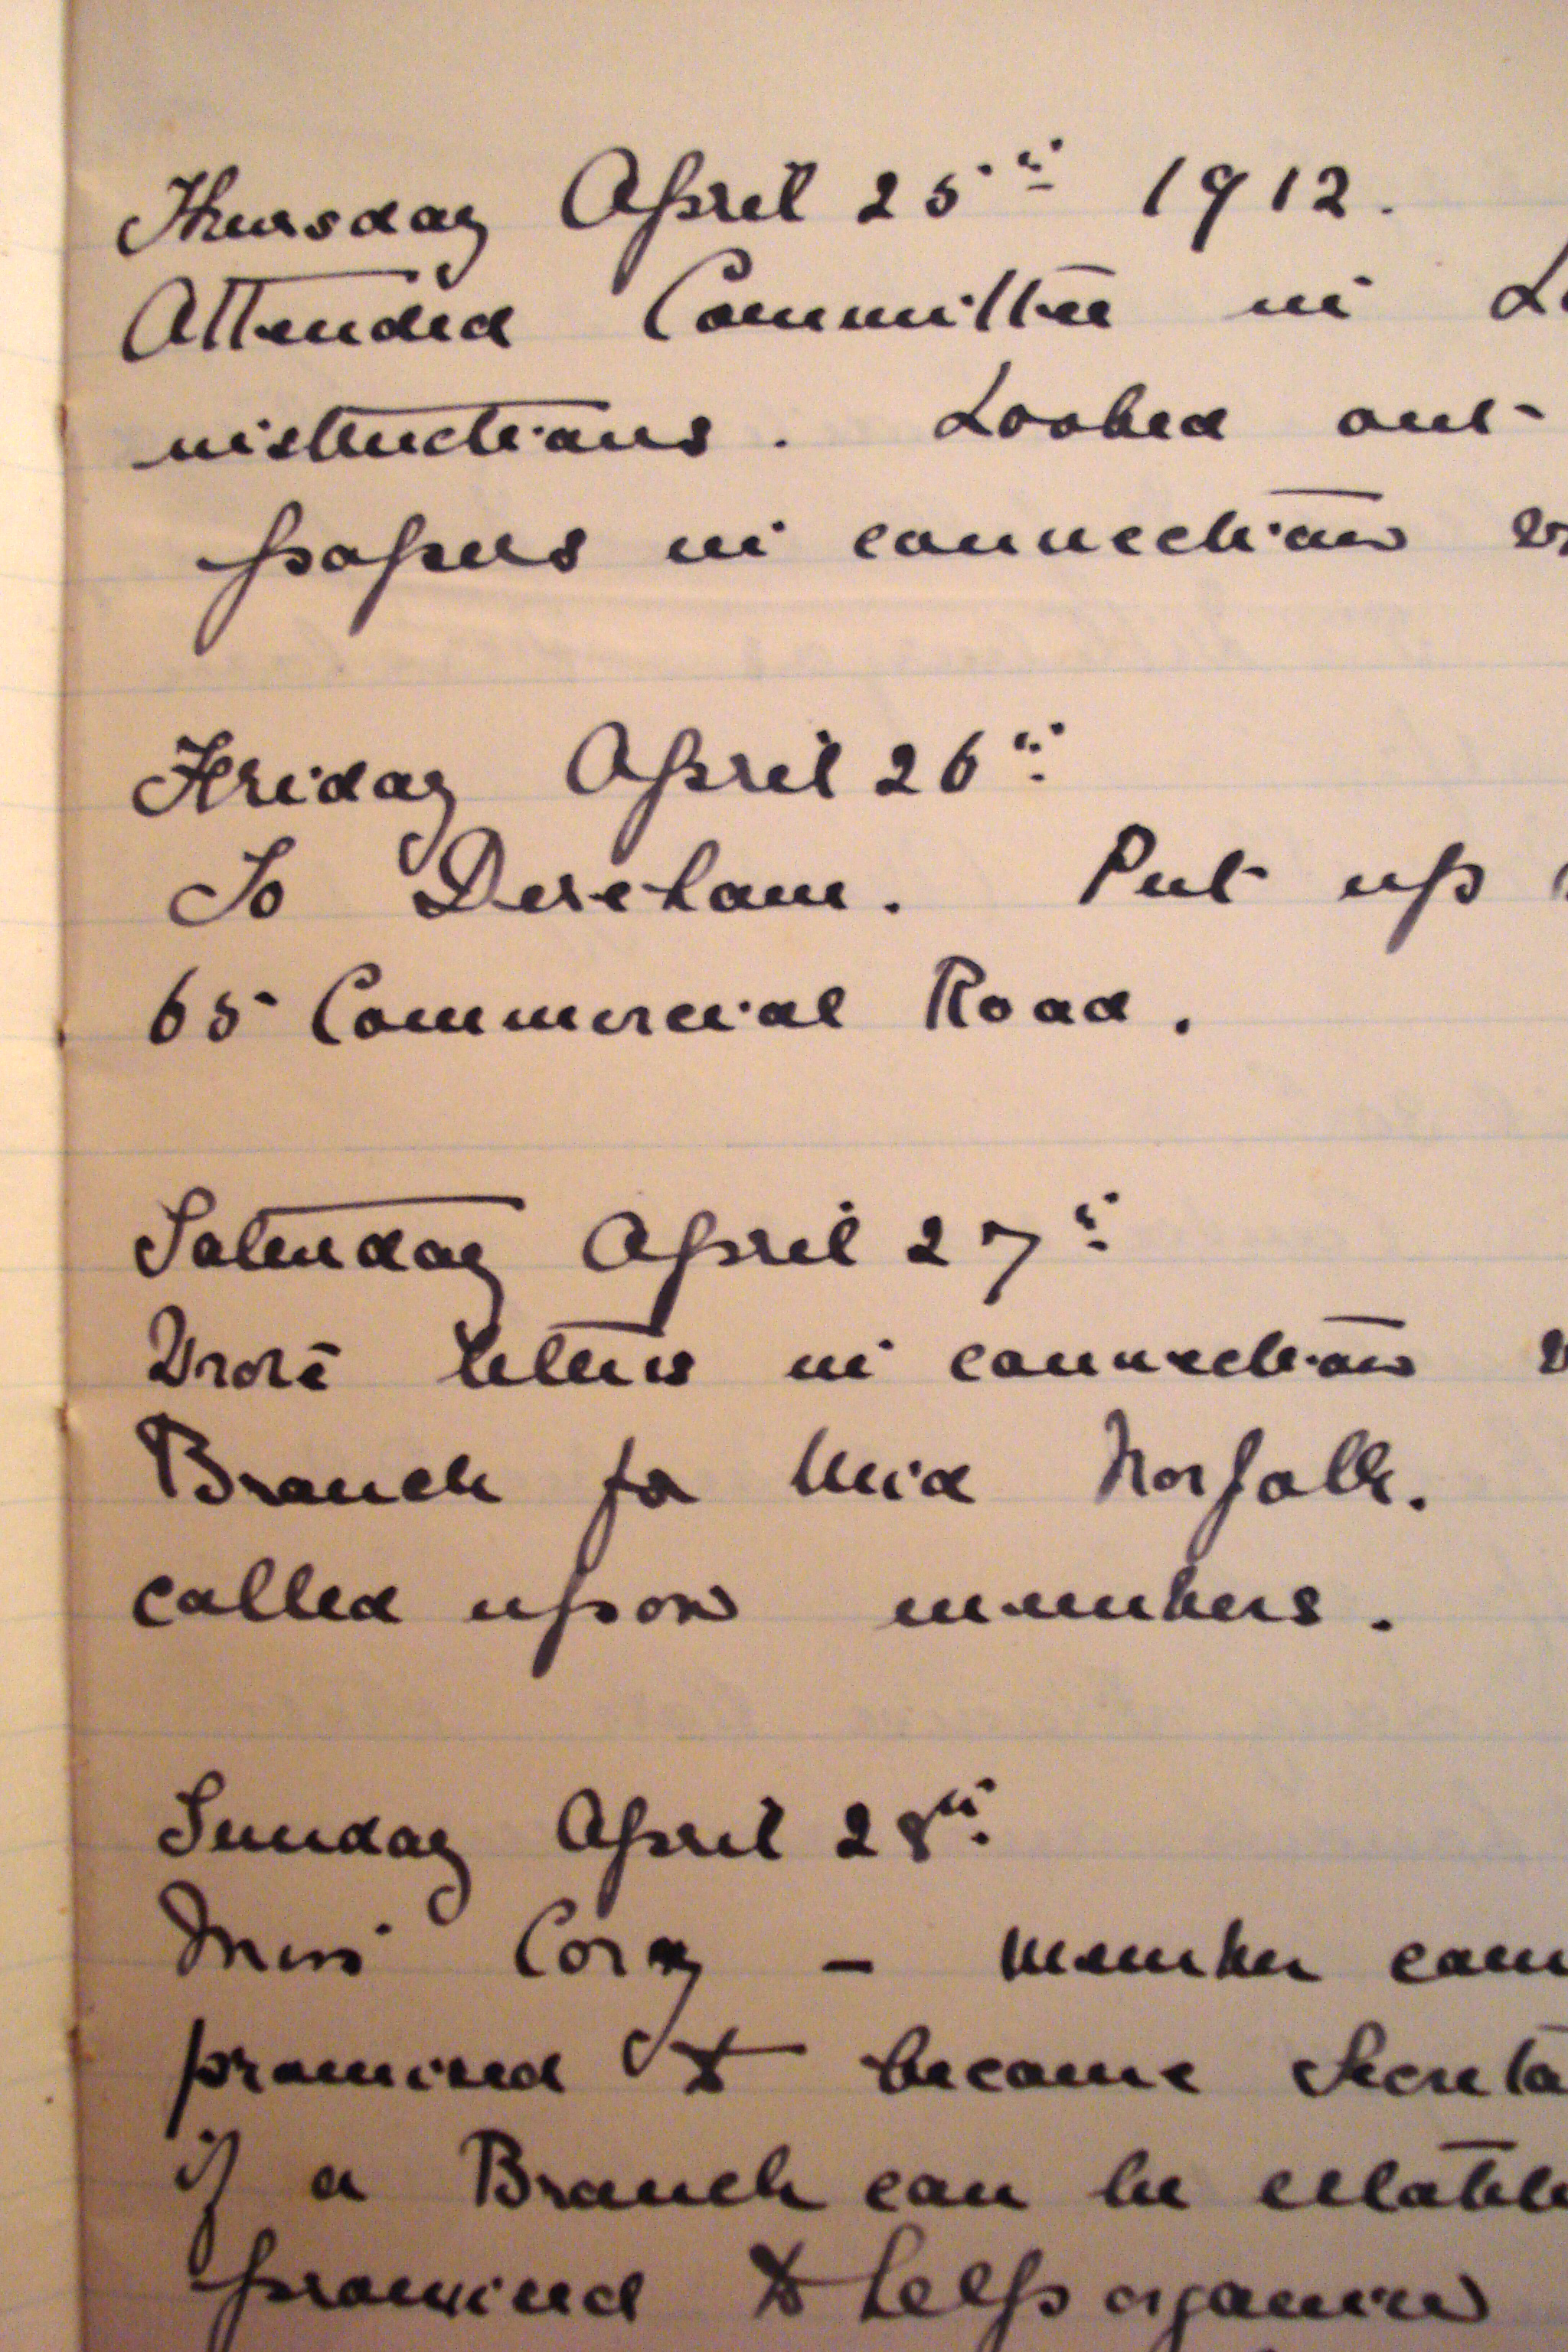 Thursday April 25th 1912.
Attended Committee in
instructions. Looked out
papers in connection
Friday April 26th
To Dereham. Put up
65 Commercial Road.
Saturday April 27th
Wrote letters in connection
Branch for Mid Norfolk.
called upon members.
Sunday April 28th
Miss Cory - member
promised to become
if a Branch can be
promised to help organise